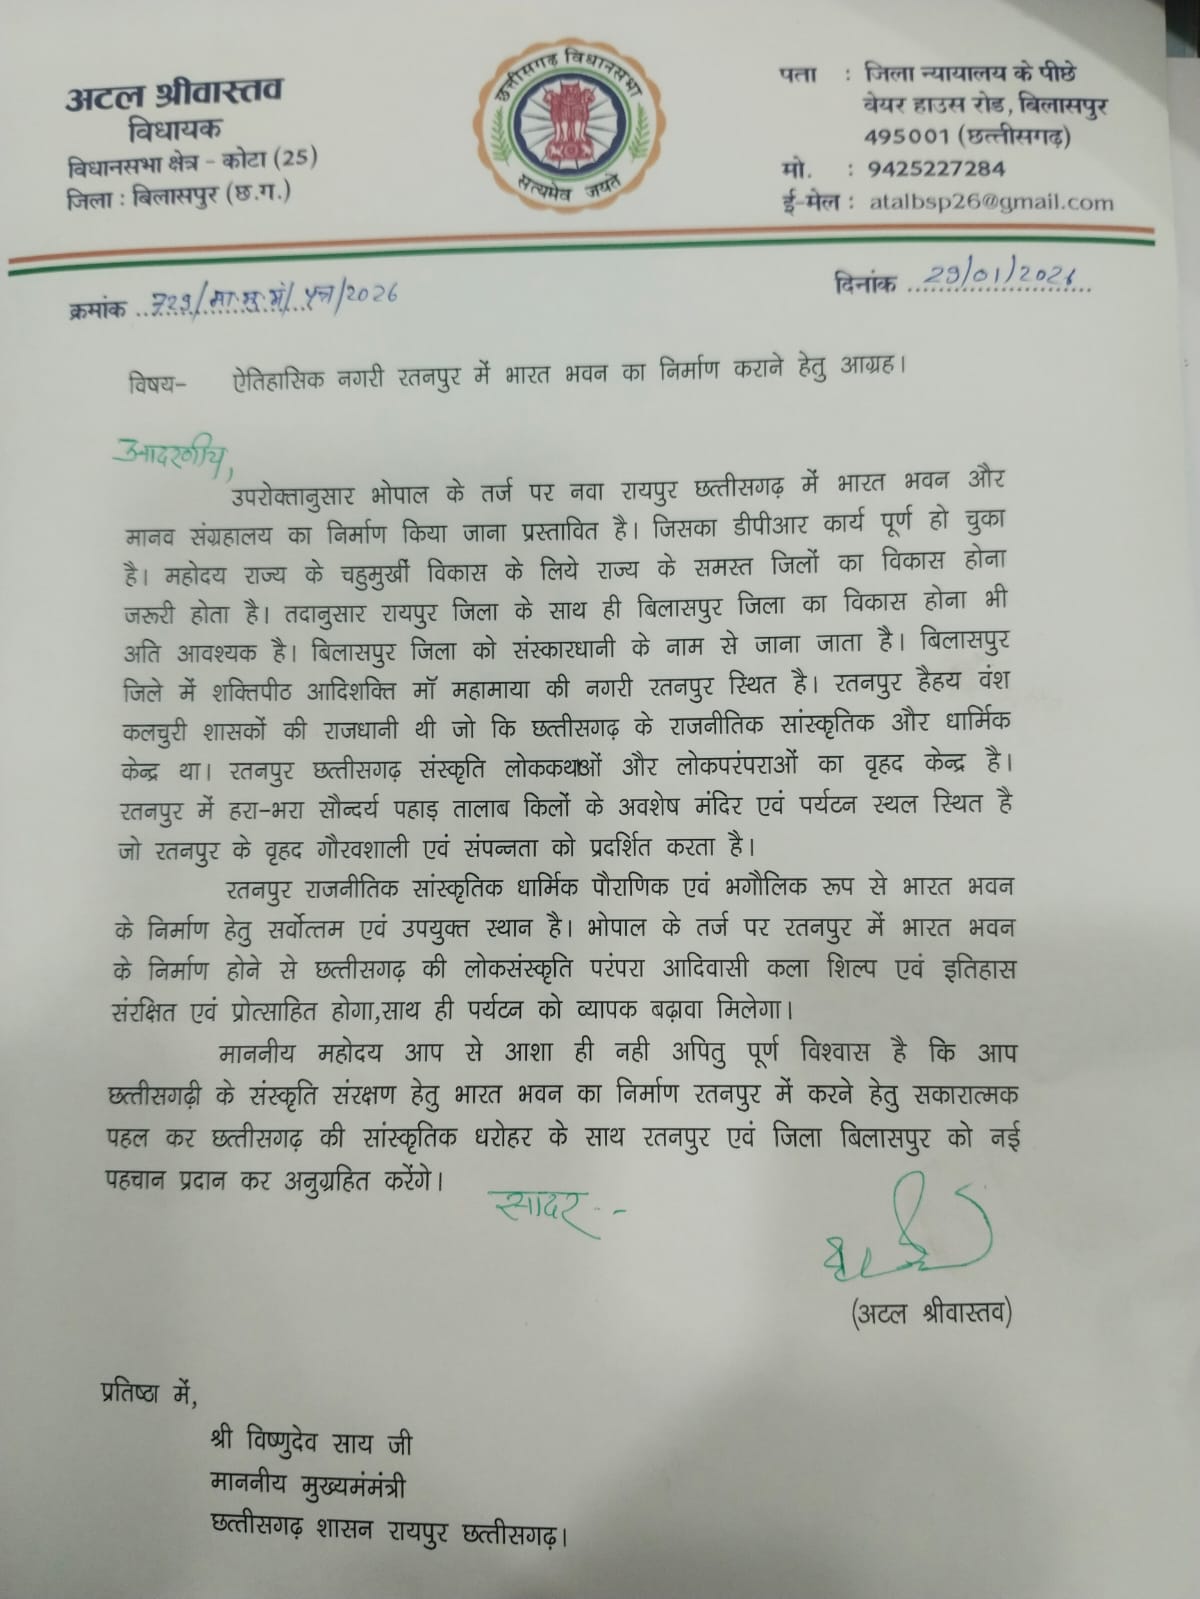 अटल श्रीवास्तव
विधायक
विधानसभा क्षेत्र - कोटा (25)
जिला : बिलासपुर (छ.ग.)
छत्तीसगढ़ विधानसभा
सत्यमेव जयते
पता : जिला न्यायालय के पीछे
वेयर हाउस रोड, बिलासपुर
495001 (छत्तीसगढ़)
मो. : 9425227284
ई-मेल : atalbsp26@gmail.com
क्रमांक 729/मा.मु.मं/पत्र/2026
दिनांक 29/01/2026
विषय- ऐतिहासिक नगरी रतनपुर में भारत भवन का निर्माण कराने हेतु आग्रह।
आदरणीय,
उपरोक्तानुसार भोपाल के तर्ज पर नवा रायपुर छत्तीसगढ़ में भारत भवन और
मानव संग्रहालय का निर्माण किया जाना प्रस्तावित है। जिसका डीपीआर कार्य पूर्ण हो चुका
है। महोदय राज्य के चहुमुर्खी विकास के लिये राज्य के समस्त जिलों का विकास होना
जरूरी होता है। तदानुसार रायपुर जिला के साथ ही बिलासपुर जिला का विकास होना भी
अति आवश्यक है। बिलासपुर जिला को संस्कारधानी के नाम से जाना जाता है। बिलासपुर
जिले में शक्तिपीठ आदिशक्ति मॉ महामाया की नगरी रतनपुर स्थित है। रतनपुर हैहय वंश
कलचुरी शासकों की राजधानी थी जो कि छत्तीसगढ़ के राजनीतिक सांस्कृतिक और धार्मिक
केन्द्र था। रतनपुर छत्तीसगढ़ संस्कृति लोककथाओं और लोकपरंपराओं का वृहद केन्द्र है।
रतनपुर में हरा-भरा सौन्दर्य पहाड़ तालाब किलों के अवशेष मंदिर एवं पर्यटन स्थल स्थित है
जो रतनपुर के वृहद गौरवशाली एवं संपन्नता को प्रदर्शित करता है।
रतनपुर राजनीतिक सांस्कृतिक धार्मिक पौराणिक एवं भगौलिक रूप से भारत भवन
के निर्माण हेतु सर्वोत्तम एवं उपयुक्त स्थान है। भोपाल के तर्ज पर रतनपुर में भारत भवन
के निर्माण होने से छत्तीसगढ़ की लोकसंस्कृति परंपरा आदिवासी कला शिल्प एवं इतिहास
संरक्षित एवं प्रोत्साहित होगा,साथ ही पर्यटन को व्यापक बढ़ावा मिलेगा।
माननीय महोदय आप से आशा ही नही अपितु पूर्ण विश्वास है कि आप
छत्तीसगढ़ी के संस्कृति संरक्षण हेतु भारत भवन का निर्माण रतनपुर में करने हेतु सकारात्मक
पहल कर छत्तीसगढ़ की सांस्कृतिक धरोहर के साथ रतनपुर एवं जिला बिलासपुर को नई
पहचान प्रदान कर अनुग्रहित करेंगे।
सादर
(अटल श्रीवास्तव)
प्रतिष्ठा में,
श्री विष्णुदेव साय जी
माननीय मुख्यमंमंत्री
छत्तीसगढ़ शासन रायपुर छत्तीसगढ़।